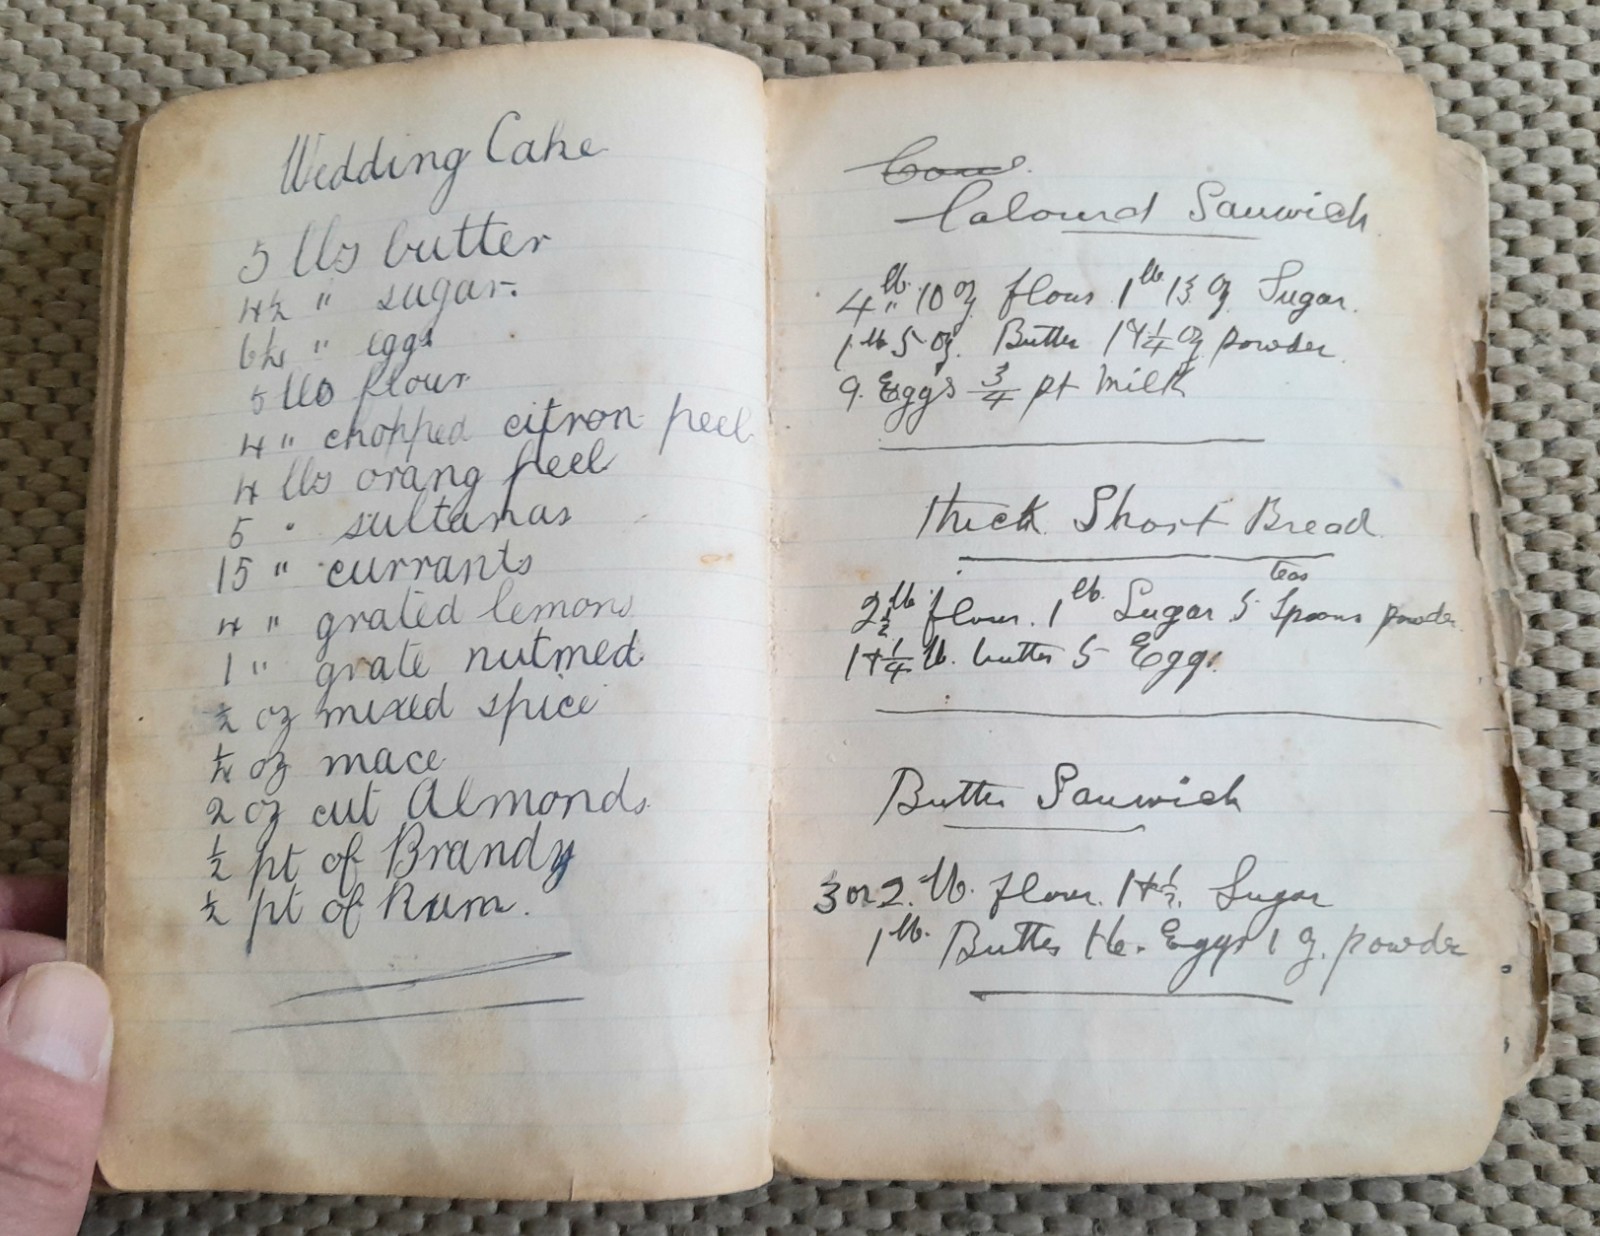 Wedding Cake
5 lbs butter
4½ " sugar.
6½ " eggs
5 lbs flour
4 " chopped citron peel
4 lbs orang peel
5 " sultanas
15 " currants
4 " grated lemons
1 " grate nutmed
½ oz mixed spice
¼ oz mace
2 oz cut Almonds
½ pt of Brandy
½ pt of Rum.
Colourd Sanwich
4 lb 10 oz flour 1 lb 13 oz Sugar.
1 lb 5 oz. Butter 1+¼ oz powder.
9. Eggs ¾ pt Milk
Thick Short Bread
teas
2½ lb flour. 1 lb. Sugar 5 Spoons powder
1+¼ lb. butter 5 Eggs.
Butter Sanwich
3 or 2. lb. flour. 1+½. Sugar
1 lb. Butter 16. Eggs 1 oz. powder